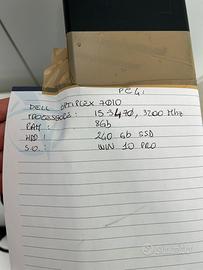 PC 4:
DELL OPTIPLEX 7010
PROCESSORE: i5 3470, 3200 Mhz
RAM: 8Gb
HDD: 240 Gb SSD
S.O.: WIN 10 PRO
subito